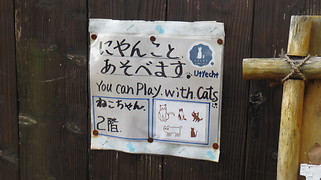 にゃんこと、
あそべます。
Utrecht
You can Play with Cats
ねこちゃん
2階